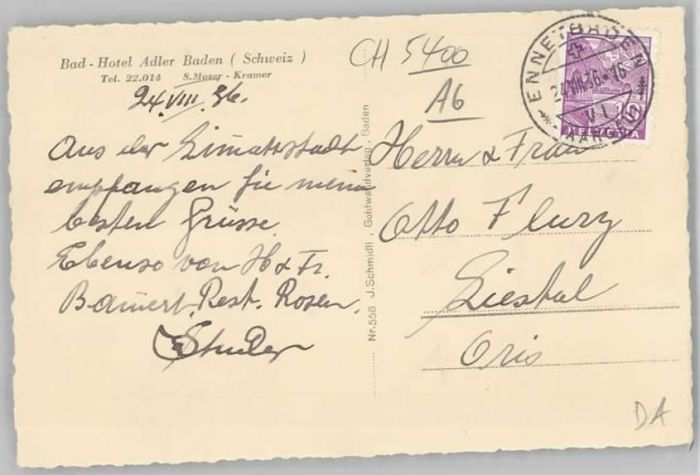 Bad - Hotel Adler Baden ( Schweiz )
Tel. 22.014 S. Moser - Kramer
24.VIII.36.
Aus der Limatstadt
empfangen Sie meine
besten Grüsse.
Ebenso von H & Fr.
Rest. Rosen.
Studer
Nr. 558 J. Schmidli, Goldwandverlag, Baden
CH 5400
A6
ENNETBADEN
24.VIII.36.-16
VI
(AARGAU)
10
HELVETIA
Herrn & Frau
Otto Flury
Liestal
Oris
DA